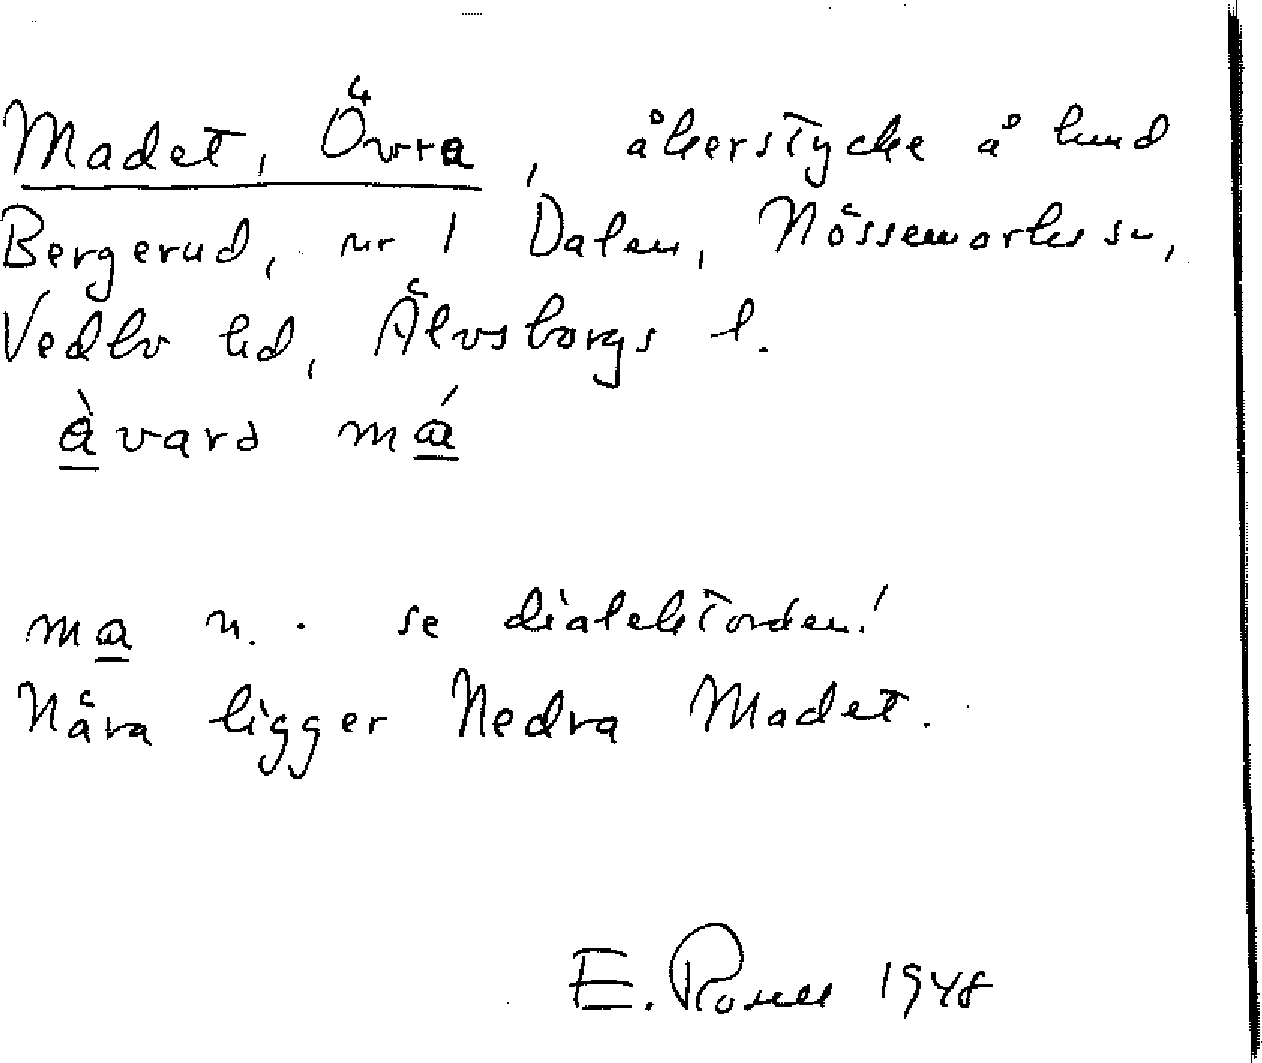 Madet, Övra, åkerstycke å hmd
Bergerud, nr 1 Dalen, Nössemarks sn,
Vedbo hd, Älvsborgs l.
àvard má
ma n. se dialektorden!
Nära ligger Nedra Madet.
E. Rosell 1948